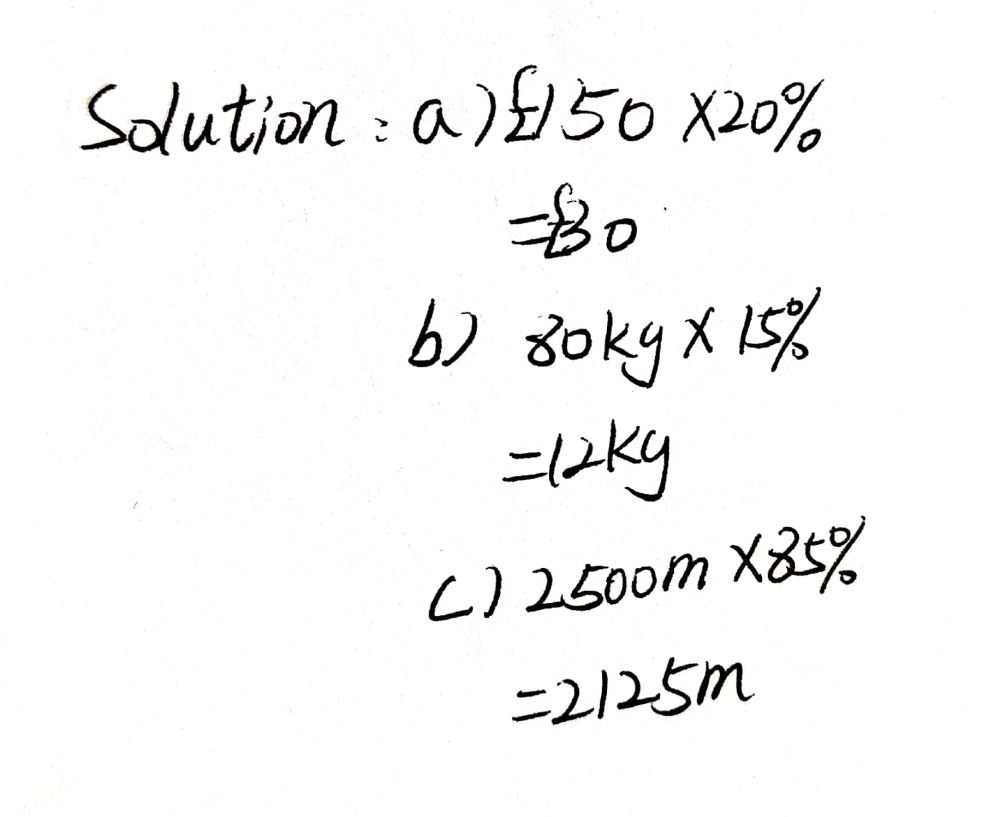 Solution : a) £150 ×20%
=£30
b) 80kg × 15%
=12kg
c) 2500m ×85%
=2125m